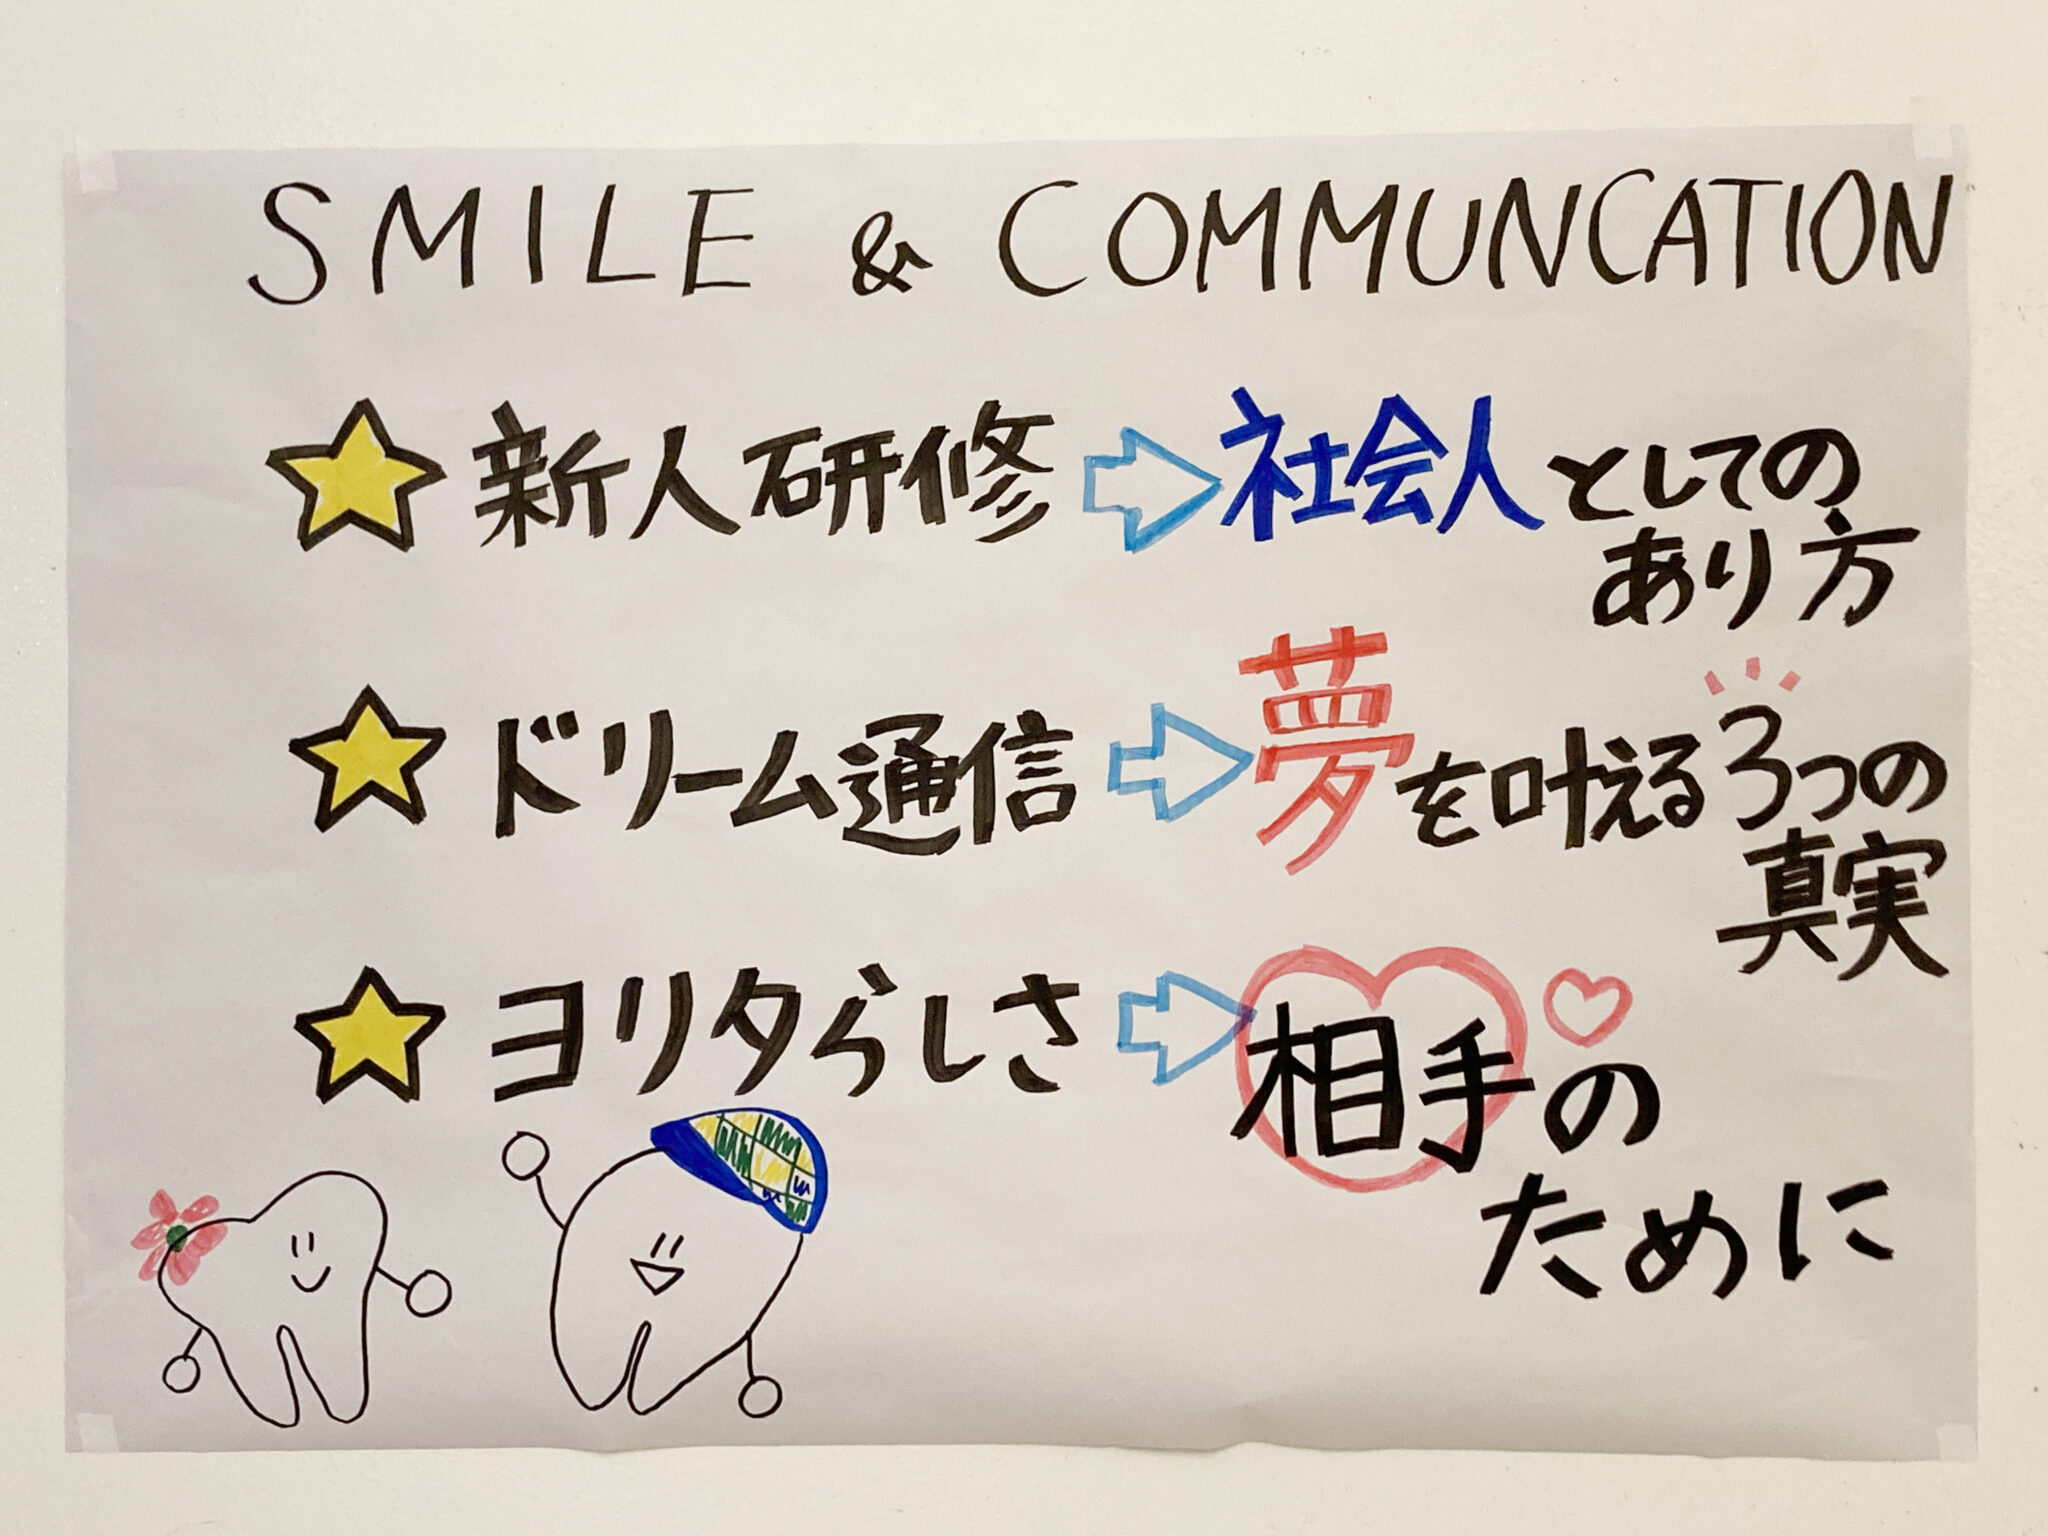 SMILE & COMMUNCATION
新人研修 ⇨ 社会人としての
あり方
ドリーム通信 ⇨ 夢を叶える3つの
真実
ヨリタらしさ ⇨ 相手の
ために